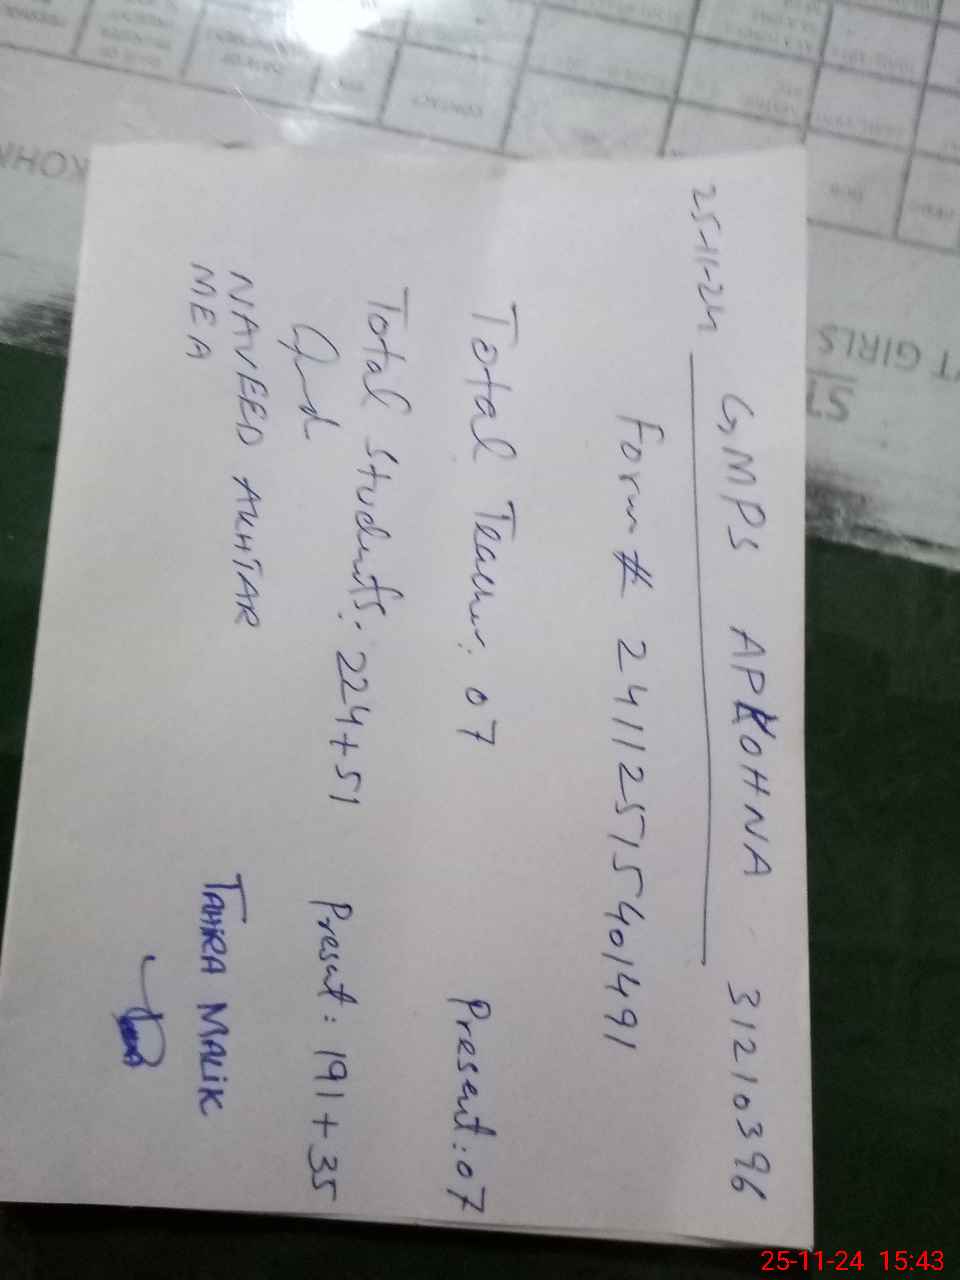 25-11-24
GMPS APKOHNA 31210396
Form # 24112515401491
Total Teacher: 07 Present: 07
Total Students: 224+51 Present: 191+35
NAVEED AKHTAR
MEA
TAHIRA MALIK
T GIRLS
ST
KOHN
CONTACT
25-11-24 15:43